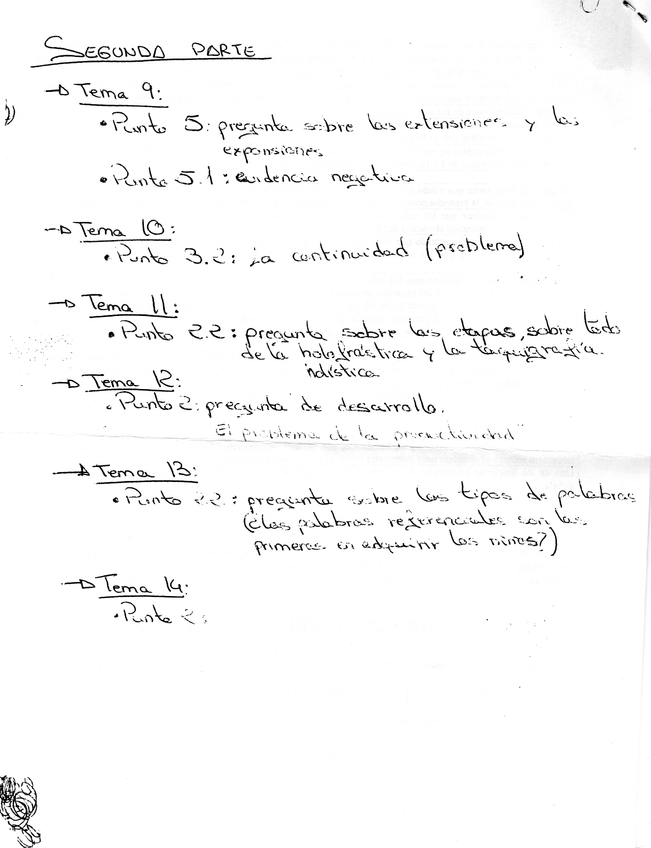 SEGUNDA PARTE
→ Tema 9:
• Punto 5: pregunta sobre las extensiones y las
expansiones
• Punto 5.1: evidencia negativa
→ Tema 10:
• Punto 3.2: la continuidad (problema)
→ Tema 11:
• Punto 2.2: pregunta sobre las etapas, sobre todo
de la holofrástica y la
→ Tema 12:
• Punto 2: pregunta de desarrollo.
El problema de la productividad"
→ Tema 13:
• Punto 2.2: pregunta sobre los tipos de palabras
(¿las palabras referenciales son las
primeras en adquirir los niños?)
→ Tema 14:
• Punto 2: